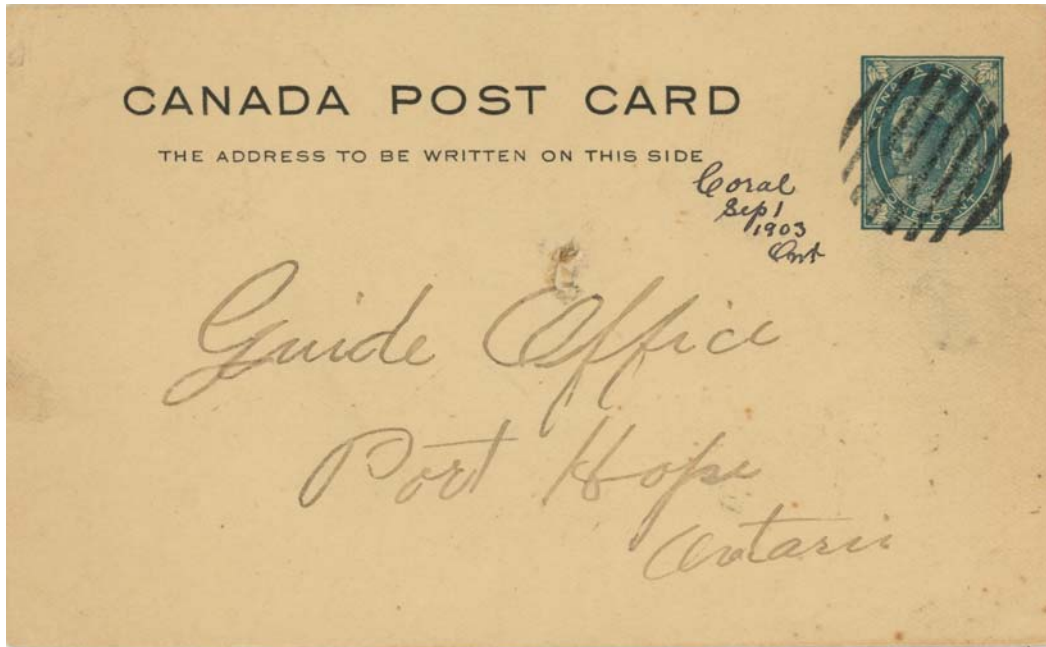 CANADA POST CARD
THE ADDRESS TO BE WRITTEN ON THIS SIDE
Coral
Sep 1
1903
Ont
Guide Office
Port Hope
Ontario
ONE CENT